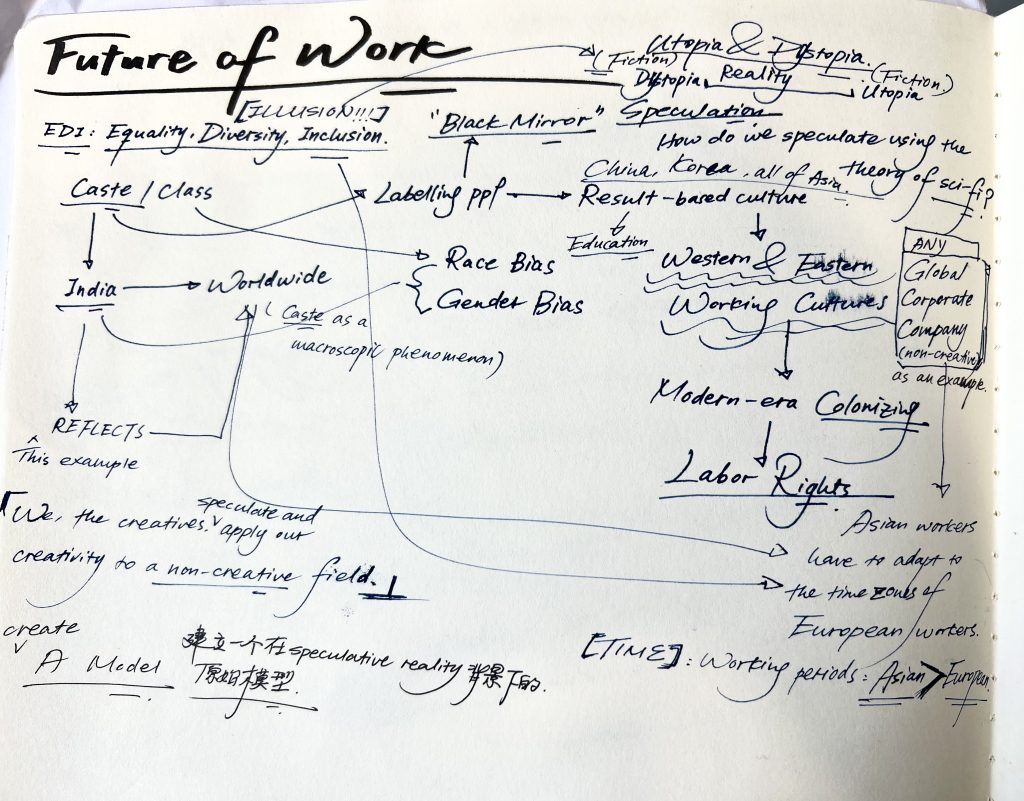 Future of Work
Utopia & Dystopia.
(Fiction)
Dystopia
Reality
(Fiction)
Utopia
[ILLUSION!!!]
EDI: Equality, Diversity, Inclusion.
"Black Mirror"
Speculation
How do we speculate using the
theory of sci-fi?
China, Korea, all of Asia.
Caste / Class
Labelling ppl
Result-based culture
Education
Race Bias
Gender Bias
Western & Eastern
Working Cultures
ANY
Global
Corporate
Company
(non-creative)
as an example.
India
Worldwide
(Caste as a
macroscopic phenomenon)
Modern-era Colonizing
REFLECTS
This example
Labor Rights
「We, the creatives, speculate and
apply our
creativity to a non-creative field.」
Asian workers
have to adapt to
the time zones of
European workers.
create
A Model
建立一个在speculative reality背景下的
原始模型.
[TIME]: Working periods: Asian > European.